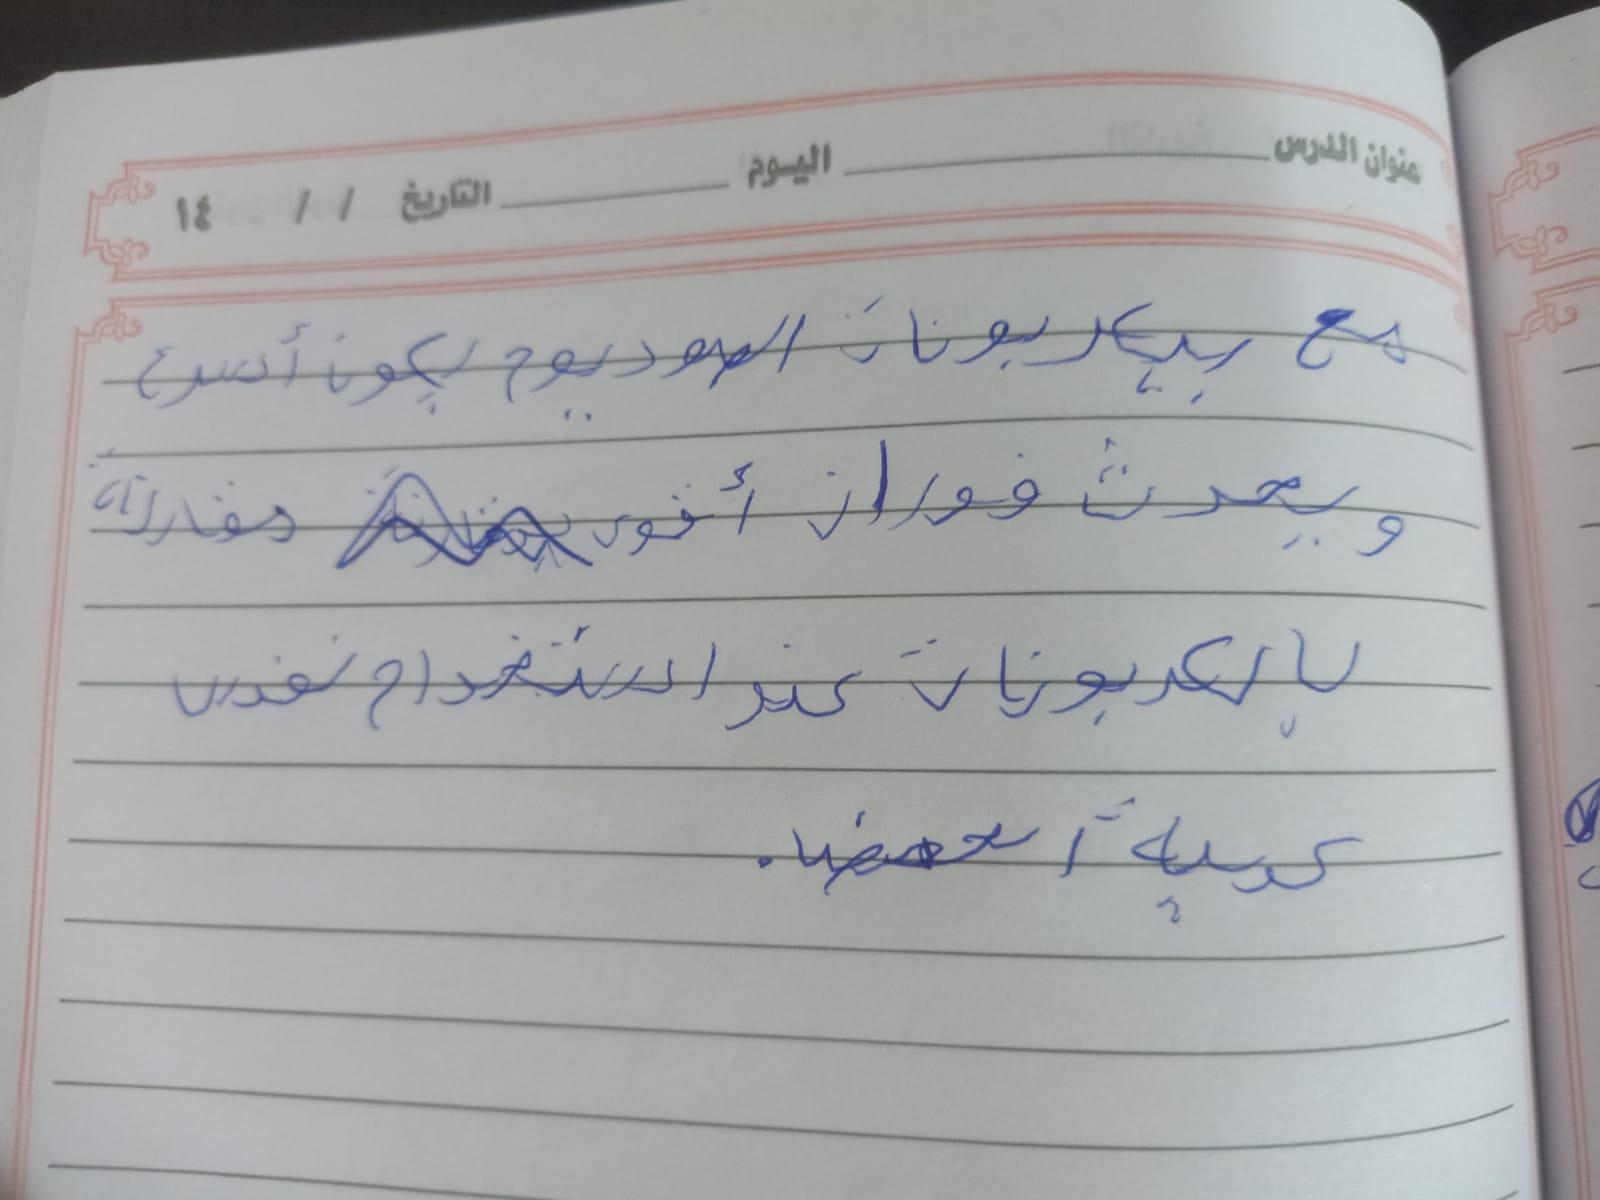 عنوان الدرس اليوم التاريخ / / ١٤
مع بيكربونات الصوديوم يكون أسرع
ويحدث فوران أقوى مقارنة
بالكربونات عند استخدام نفس
كمية الحمض.